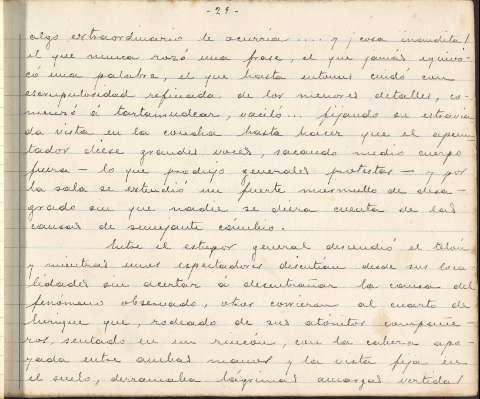 - 29 -
algo extraordinario le ocurría .... y ¡cosa inaudita!
el que nunca rozó una frase, el que jamás equivo-
có una palabra, el que hasta entonces cuidó con
escrupulosidad refinada de los menores detalles, co-
menzó á tartamudear, vaciló... fijando su extravia-
da vista en la concha hasta hacer que el apun-
tador diese grandes voces, sacando medio cuerpo
fuera - lo que produjo generales protestas - y por
la sala se extendió un fuerte murmullo de desa-
grado sin que nadie se diera cuenta de las
causas de semejante cámbio.
Entre el estupor general descendió el telón
y mientras unos espectadores discutían desde sus loca-
lidades sin acertar á desentrañar la causa del
fenómeno observado, otros corrieron al cuarto de
Enrique que, rodeado de sus atónitos compañe-
ros, sentado en un rincón, con la cabeza apo-
yada entre ambas manos y la vista fija en
el suelo, derramaba lágrimas amargas vertidas